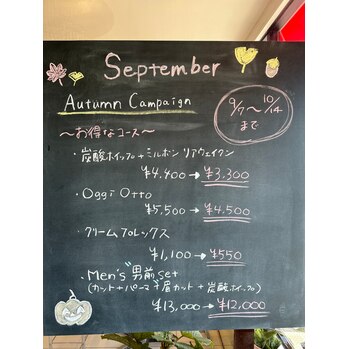 September
Autumn Campaign
9/7〜10/14
まで
〜お得なコース〜
・炭酸ホイップ+ミルボン リアウェイクン
¥4,400→¥3,300
・Oggi Otto
¥5,500→¥4,500
・クリームプレックス
¥1,100→¥550
・Men's "男前" set
(カット+パーマ+眉カット+炭酸ホイップ)
¥13,000→¥12,000